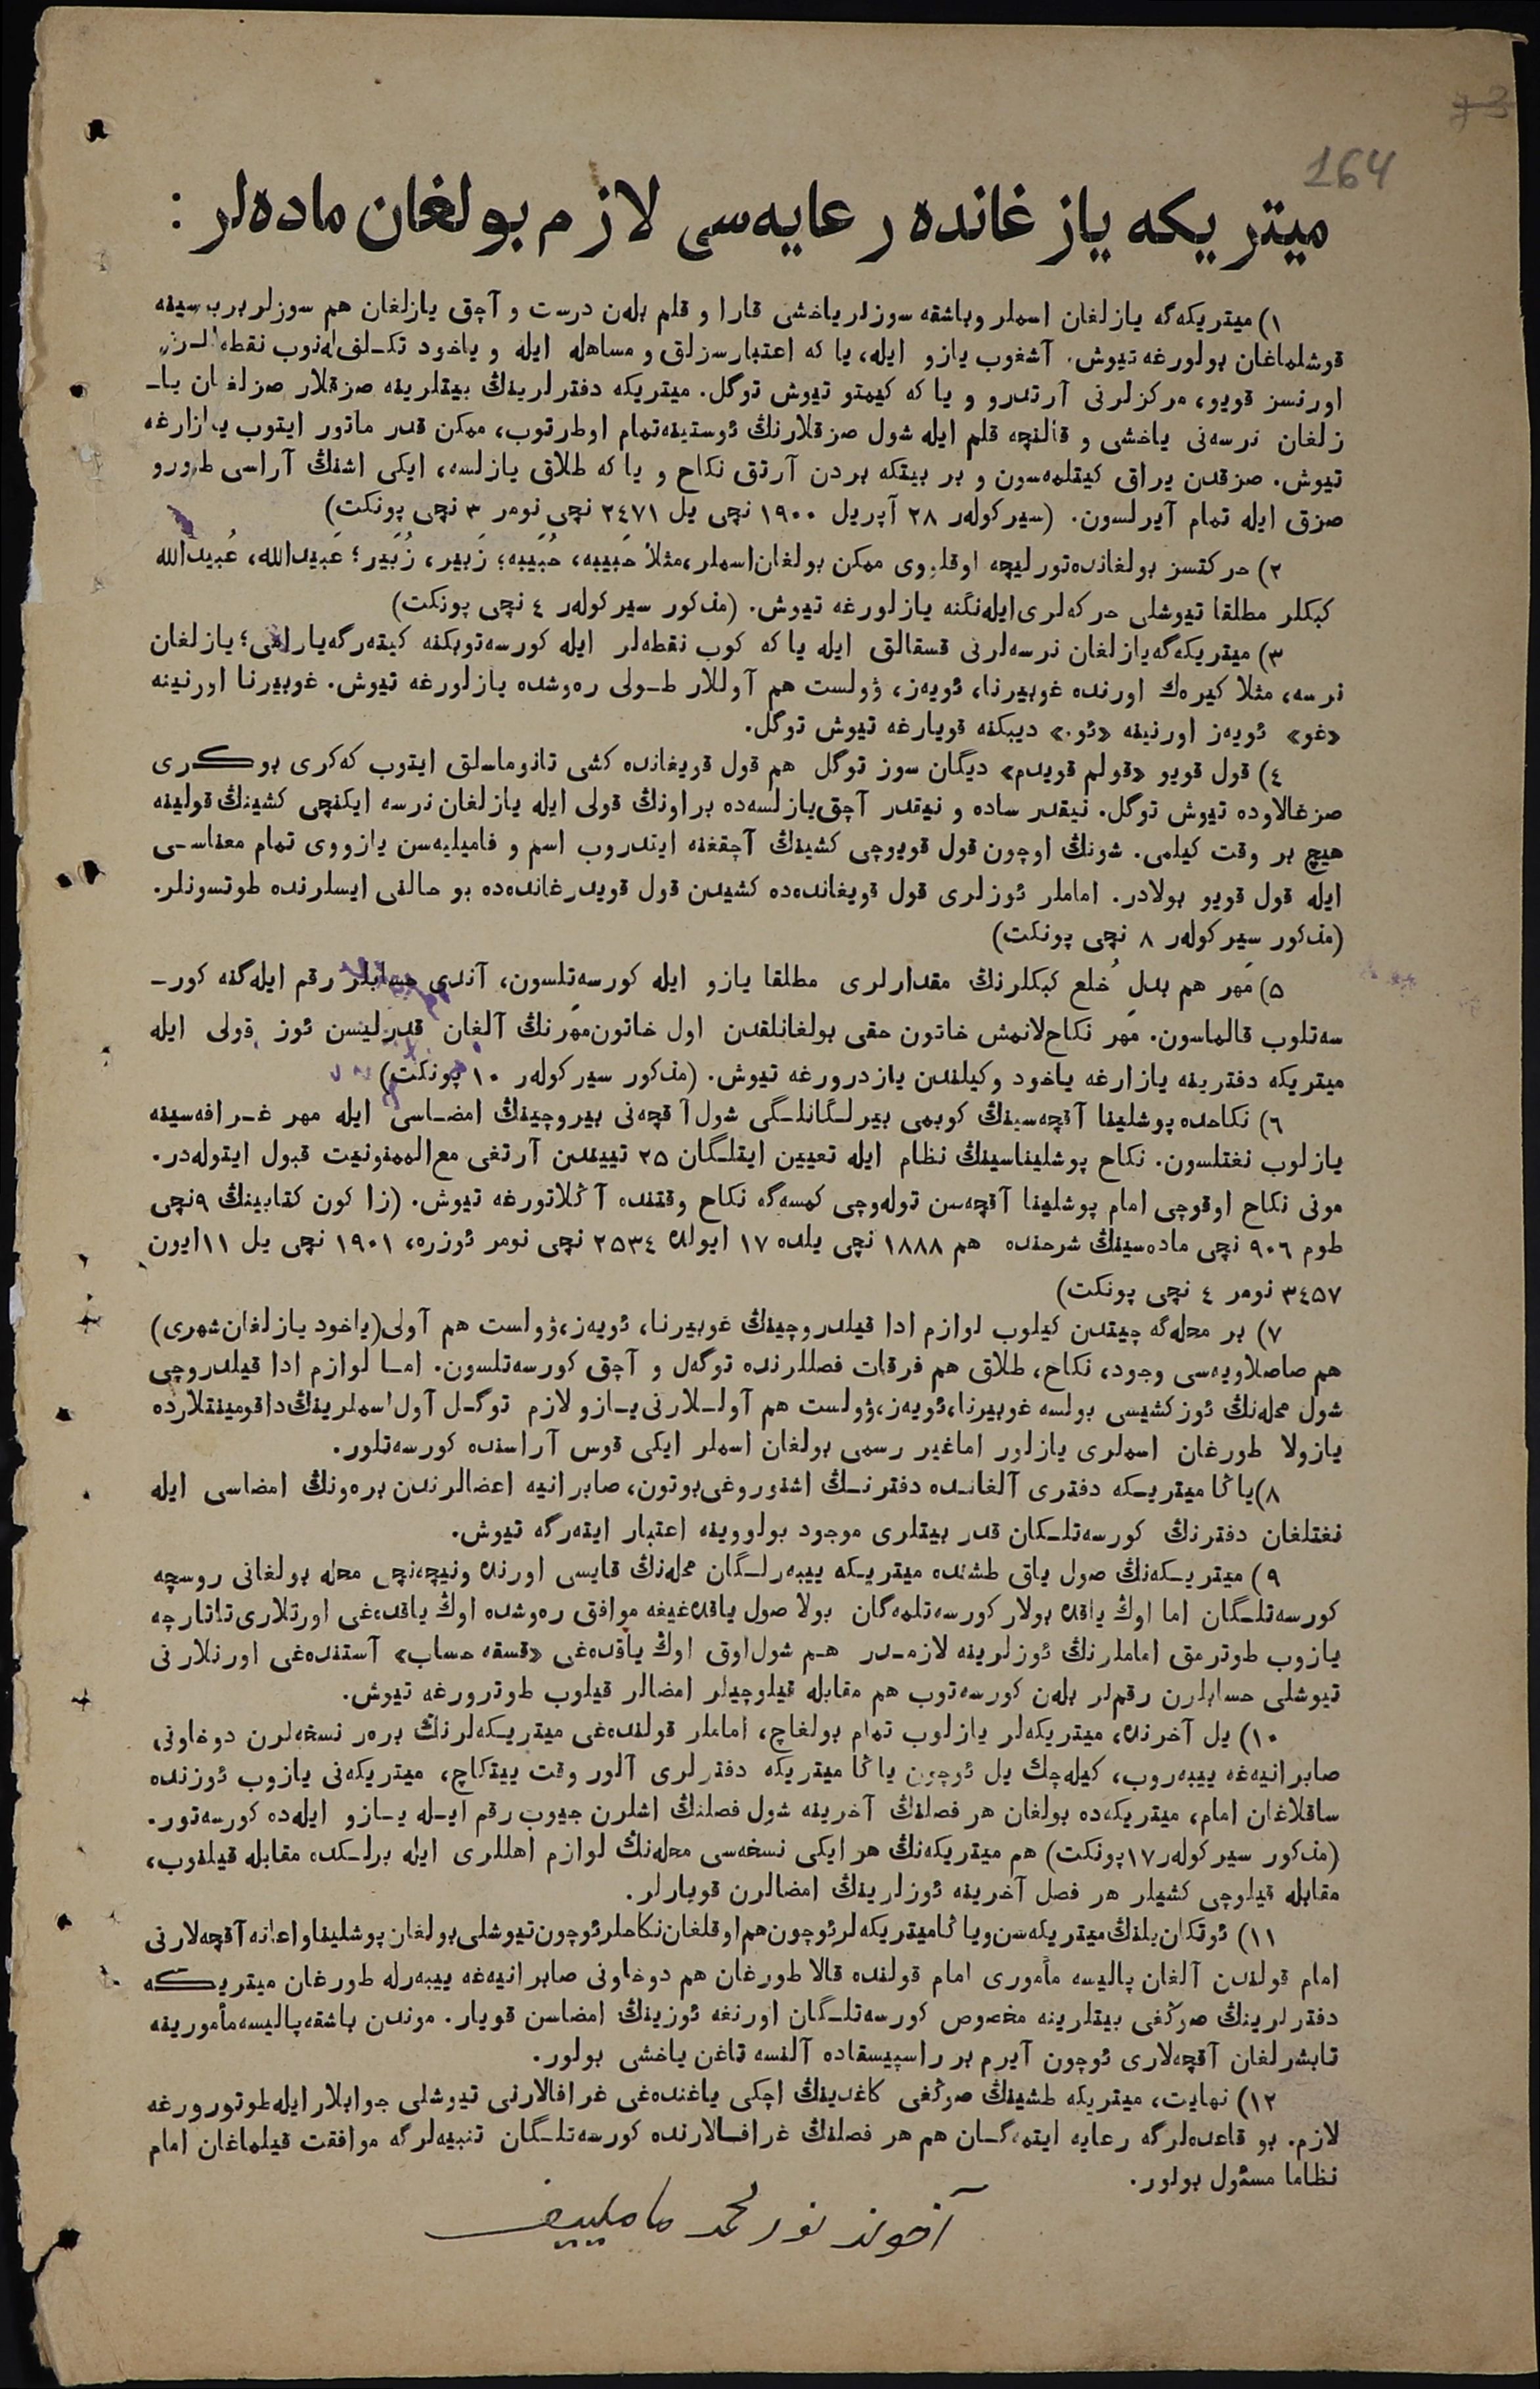 164
ميتريكه يازغانده رعايه‌سى لازم بولغان ماده‌لر :
١) ميتريكه‌گه يازلغان اسملر وباشقه سوزلر ياخشى قارا و قلم بله‌ن درست و آچق يازلغان هم سوزلر بربرسينه
قوشلماغان بولورغه تيوش. آشغوب يازو ايله، يا كه اعتبارسزلق و مساهله ايله و ياخود تكـلف‌له‌نوب نقطه‌لرنى
اورنسز قويو، مركزلرنى آرتدرو و يا كه كيمتو تيوش توگل. ميتريكه دفترلرينڭ بيتلرينه صزقلار صزلغان يا‌ـ
زلغان نرسه‌نى ياخشى و قالنچه قلم ايله شول صزقلارنڭ ئوستينه‌تمام اوطرتوب، ممكن قدر ماتور ايتوب يازارغه
تيوش. صزقدن يراق كيتلمه‌سون و بر بيتكه بردن آرتق نكاح و يا كه طلاق يازلسه، ايكى اشنڭ آراسى طورو
صزق ايله تمام آيرلسون. (سيركوله‌ر ٢٨ آپريل ١٩٠٠ نچى يل ٢٤٧١ نچى نومر ٣ نچى پونكت)
٢) حركتسز بولغانده‌تورليچه اوقلووى ممكن بولغان‌اسملر،مثلا حَبيبه، حُبَيبه؛ زَبير، زُبَير؛ عَبيدالله، عُبيدالله
كبكلر مطلقا تيوشلى حركه‌لرى‌ايله‌نگنه يازلورغه تيوش. (مذكور سيركوله‌ر ٤ نچى پونكت)
٣) ميتريكه‌گه‌يازلغان نرسه‌لرنى قسقالق ايله يا كه كوب نقطه‌لر ايله كورسه‌توبكنه كيته‌رگه‌يارامى؛ يازلغان
نرسه، مثلا كيره‌ك اورنده غوبيرنا، ئويه‌ز، ۋولست هم آوللار طـولى ره‌وشده يازلورغه تيوش. غوبيرنا اورنينه
«غو» ئويه‌ز اورنينه «ئو.» ديبكنه قويارغه تيوش توگل.
٤) قول قويو «قولم قويدم» ديگان سوز توگل هم قول قويغانده كشى تانوماسلق ايتوب كه‌كرى بوكـرى
صزغالاوده تيوش توگل. نيقدر ساده و نيقدر آچق‌يازلسه‌ده براونڭ قولى ايله يازلغان نرسه ايكنچى كشينڭ قولينه
هيچ بر وقت كيلمى. شونڭ اوچون قول قويوچى كشينڭ آچقغنه ايتدروب اسم و فاميليه‌سن يازووى تمام معناسـى
ايله قول قويو بولادر. اماملر ئوزلرى قول قويغانده‌ده كشيدن قول قويدرغانده‌ده بو حالنى ايسلرنده طوتسونلر.
(مذكور سيركوله‌ر ٨ نچى پونكت)
٥) مَهر هم بدلِ خُلع كبكلرنڭ مقدارلرى مطلقا يازو ايله كورسه‌تلسون، آندى حسابلر رقم ايله‌گنه كورـ
سه‌تلوب قالماسون. مَهر نكاح‌لانمش خاتون حقى بولغانلقدن اول خاتون‌مَهرنڭ آلغان قدرليسن ئوز قولى ايله
ميتريكه دفترينه يازارغه ياخود وكيلندن يازدرورغه تيوش. (مذكور سيركوله‌ر ١٠ پونكت)
٦) نكاحده پوشلينا آقچه‌سينڭ كوبمى بيرلـگانلـگى شول آقچه‌نى بيروچينڭ امضـاسى ايله مهر غـرافه‌سينه
يازلوب نغتلسون. نكاح پوشليناسينڭ نظام ايله تعيين ايتلـگان ٢٥ تييندن آرتغى مع‌الممنونيت قبول ايتوله‌در.
مونى نكاح اوقوچى امام پوشلينا آقچه‌سن توله‌وچى كمسه‌گه نكاح وقتنده آڭلاتورغه تيوش. (زاكون كتابينڭ ٩نچى
طوم ٩٠٦ نچى ماده‌سينڭ شرحنده هم ١٨٨٨ نچى يلده ١٧ ايولده ٢٥٣٤ نچى نومر ئوزره، ١٩٠١ نچى يل ١١ايون
٣٤٥٧ نومر ٤ نچى پونكت)
٧) بر محله‌گه چيتدن كيلوب لوازم ادا قيلدروچينڭ غوبيرنا، ئويه‌ز،ۋولست هم آولى(ياخود يازلغان‌شهرى)
هم صاصلاويه‌سى وجود، نكاح، طلاق هم فرقات فصللرنده توگه‌ل و آچق كورسه‌تلسون. امـا لوازم ادا قيلدروچى
شول محله‌نڭ ئوزكشيسى بولسه غوبيرنا،ئويه‌ز،ۋولست هم آولـلارنى يـازو لازم توگـل آول‌اسملرينڭ‌داقومينتلارده
يازولا طورغان اسملرى يازلور اماغير رسمى بولغان اسملر ايكى قوس آراسنده كورسه‌تلور.
٨)ياڭا ميتريـكه دفترى آلغانـده دفترنـڭ اشنوروغى‌بوتون، صابرانيه اعضالرندن بره‌ونڭ امضاسى ايله
نغتلغان دفترنڭ كورسه‌تلـكان قدر بيتلرى موجود بولووينه اعتبار ايته‌رگه تيوش.
٩) ميتريـكه‌نڭ صول ياق طشنده ميتريـكه ييبه‌رلـگان محله‌نڭ قايسى اورنده ونيچه‌نچى محله بولغانى روسچه
كورسه‌تلـگان اما اوڭ ياقده بولار كورسه‌تلمه‌گان بولا صول ياقده‌غيغه موافق ره‌وشده اوڭ ياقده‌غى اورتلارى‌تاتارچه
يازوب طوترمق اماملرنڭ ئوزلرينه لازمـدر هـم شول‌اوق اوڭ ياقده‌غى «قسقه حساب» آستنده‌غى اورنلارنى
تيوشلى حسابلرن رقم‌لر بله‌ن كورسه‌توب هم مقابله قيلوچيلر امضالر قيلوب طوترورغه تيوش.
١٠) يل آخرنده، ميتريكه‌لر يازلوب تمام بولغاچ، اماملر قولنده‌غى ميتريـكه‌لرنڭ بره‌ر نسخه‌لرن دوخاونى
صابرانيه‌غه ييبه‌روب، كيله‌چك يل ئوچون ياڭا ميتريكه دفترلرى آلور وقت ييتكاچ، ميتريكه‌نى يازوب ئوزنده
ساقلاغان امام، ميتريكه‌ده بولغان هر فصلنڭ آخرينه شول فصلنڭ اشلرن جيوب رقم ايـله يـازو ايله‌ده كورسه‌تور.
(مذكور سيركوله‌ر ١٧پونكت) هم ميتريكه‌نڭ هر ايكى نسخه‌سى محله‌نڭ لوازم اهللرى ايله برلـكده مقابله قيلنوب،
مقابله قيلوچى كشيلر هر فصل آخرينه ئوزلرينڭ امضالرن قويارلر.
١١) ئوتكان‌يلنڭ‌ميتريكه‌سن‌وياڭاميتريكه‌لرئوچون‌هم‌اوقلغان‌نكاحلرئوچون‌تيوشلى‌بولغان‌پوشليناواعانه آقچه‌لارنى
امام قولندن آلغان پاليسه مأمورى امام قولنده قالا طورغان هم دوخاونى صابرانيه‌غه ييبه‌رله طورغان ميتريكه
دفترلرينڭ صوڭغى بيتلرينه مخصوص كورسه‌تلـگان اورنغه ئوزينڭ امضاسن قويار. موندن باشقه‌پاليسه‌مأمورينه
تابشرلغان آقچه‌لارى ئوچون آيرم بر راسپيسقاده آلنسه تاغن ياخشى بولور.
١٢) نهايت، ميتريكه طشينڭ صوڭغى كاغدينڭ اچكى ياغنده‌غى غرافالارنى تيوشلى جوابلار ايله‌طوتورورغه
لازم. بو قاعده‌لرگه رعايه ايتمه‌گـان هم هر فصلنڭ غرافـالارنده كورسه‌تلـگان تنبيه‌لرگه موافقت قيلماغان امام
نظاما مسئول بولور.
آخوند نورمحمد ماملييف